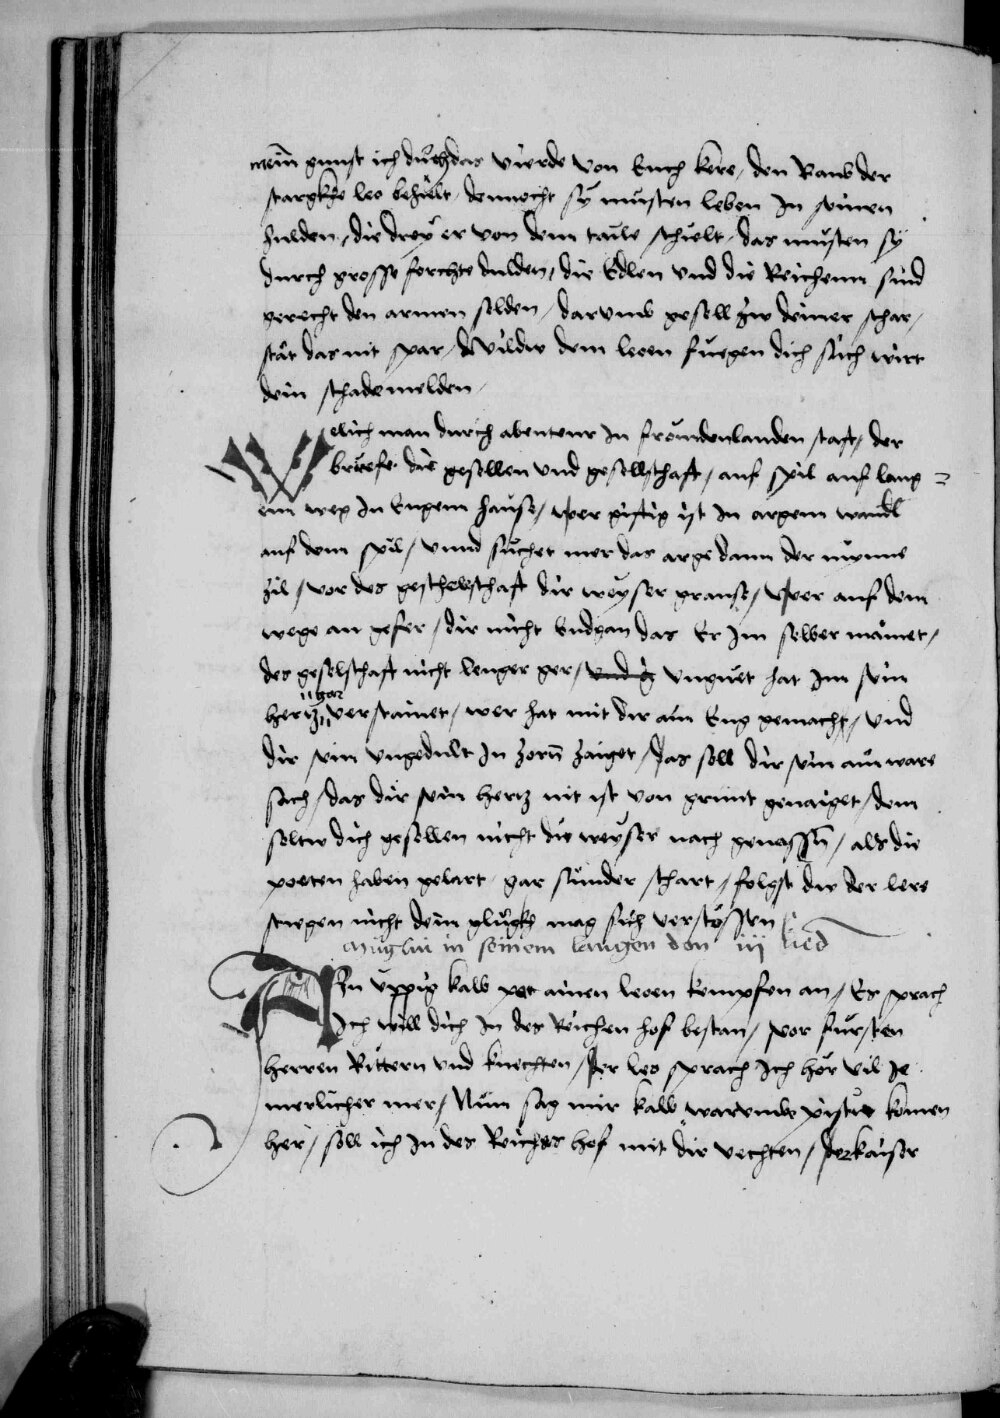 mein gunst ich durch das vierde von Euch kere / den Raub der
starckhe leo behielt / dennocht sy musten leben In seinen
hulden / die drey er von dem taile schielt / das musten sy
durch grosse forchte dulden / die Edlen und die Reichenn sind
gerecht den armen selden / darumb gesell zw deiner schar /
stät das nit spar / wildw dem leoen fuegen dich sich wirt
dein schade melden /
Welich man durch abenteur In fromden landen staft / der
bruefe die gesellen und gesellschaft / auf spil auf lang =
em weg In Engem hause / wer giftig ist In argem wandl
auf dem spil / unnd suchet mer das arge dann der mynne
zil / vor des gesellschaft dir weyser grause / wer auf dem
wege an gefer / dir nicht Endgan das Er Im selber mainet /
des geselschaft nicht lenger ger / und g unguet hat Im sein
hertz gar verstainet / wer hat mit dir ain Eng gemacht / und
dir sein ungedult In zorn zaiget / das soll dir sein ain ware
sach / das dir sein hertz nit ist von grunt genaiget / dem
soltw dich gesellen nicht die weyser nach / als die
poeten haben gelart gar sunder schart / folgst dw der lere
stiegen nicht dein glugkh mag sich verstossen
Muglin in seinem langen don iij lied
AIn uppig kalb pat ainen leoen kempfen an / Es sprach
Ich will dich In des Reichen hof bestan / vor fursten
herren Rittern und knechten / der leo sprach Ich hör vil Je
merlicher mer / Nun sag mir kalb warumb pistw komen
her / soll ich In des Reiches hof mit dir vechten / der kaiser